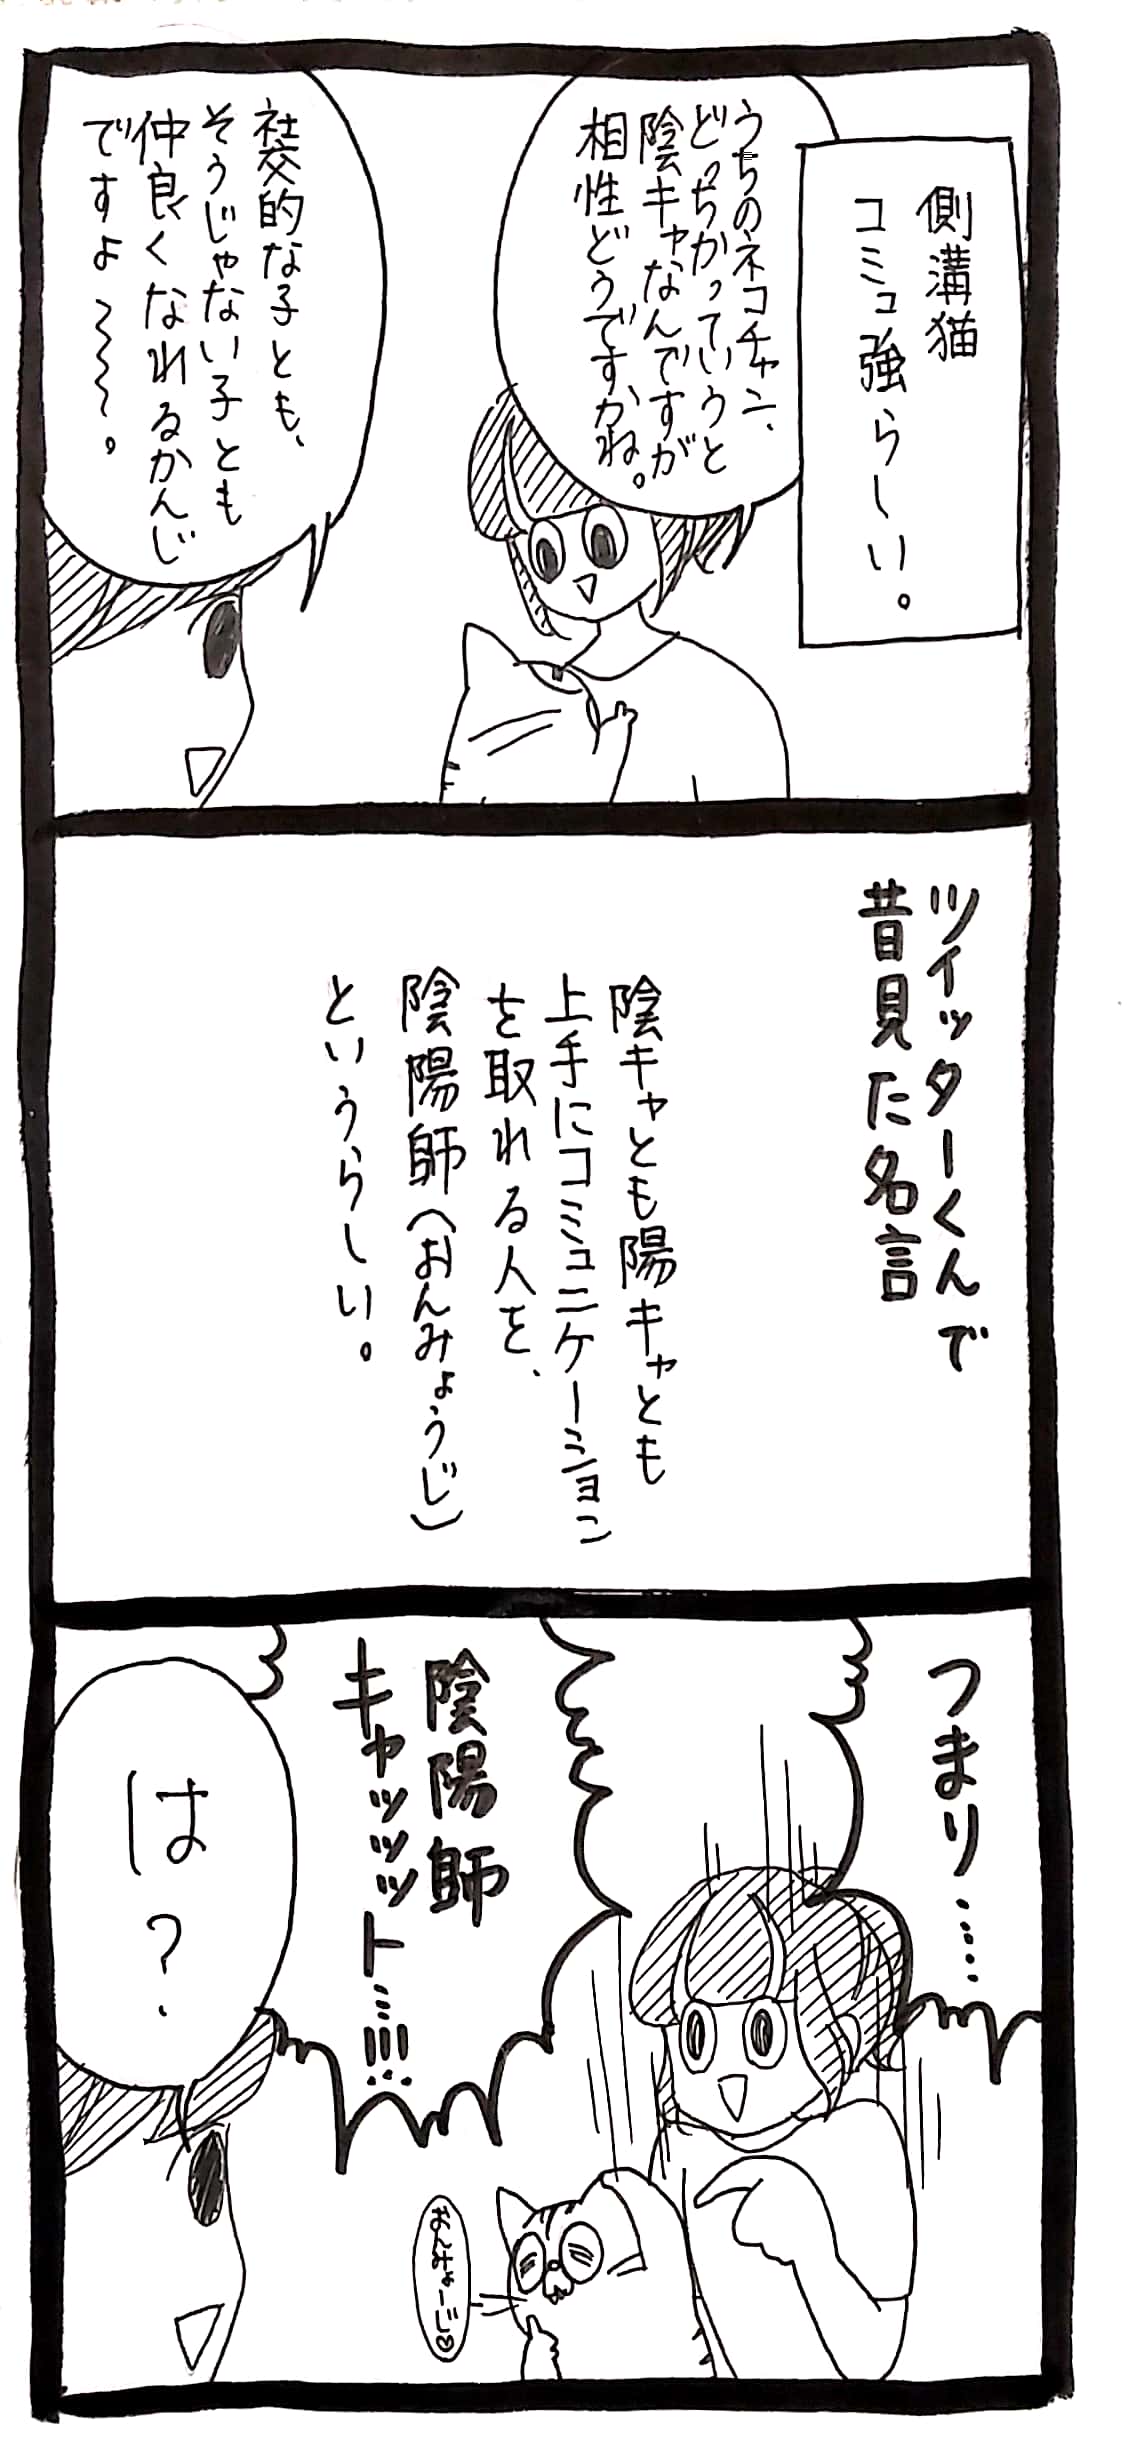 側溝猫
コミュ強らしい。
うちのネコチャン、
どっちかっていうと
陰キャなんですが
相性どうですかね。
社交的な子とも、
そうじゃない子とも
仲良くなれるかんじ
ですよ〜〜〜。
ツイッターくんで
昔見た名言
陰キャとも陽キャとも
上手にコミュニケーション
を取れる人を、
陰陽師(おんみょうじ)
というらしい。
つまり……
陰陽師
キャッッット…!!!…
おんみょーじ♡
は?